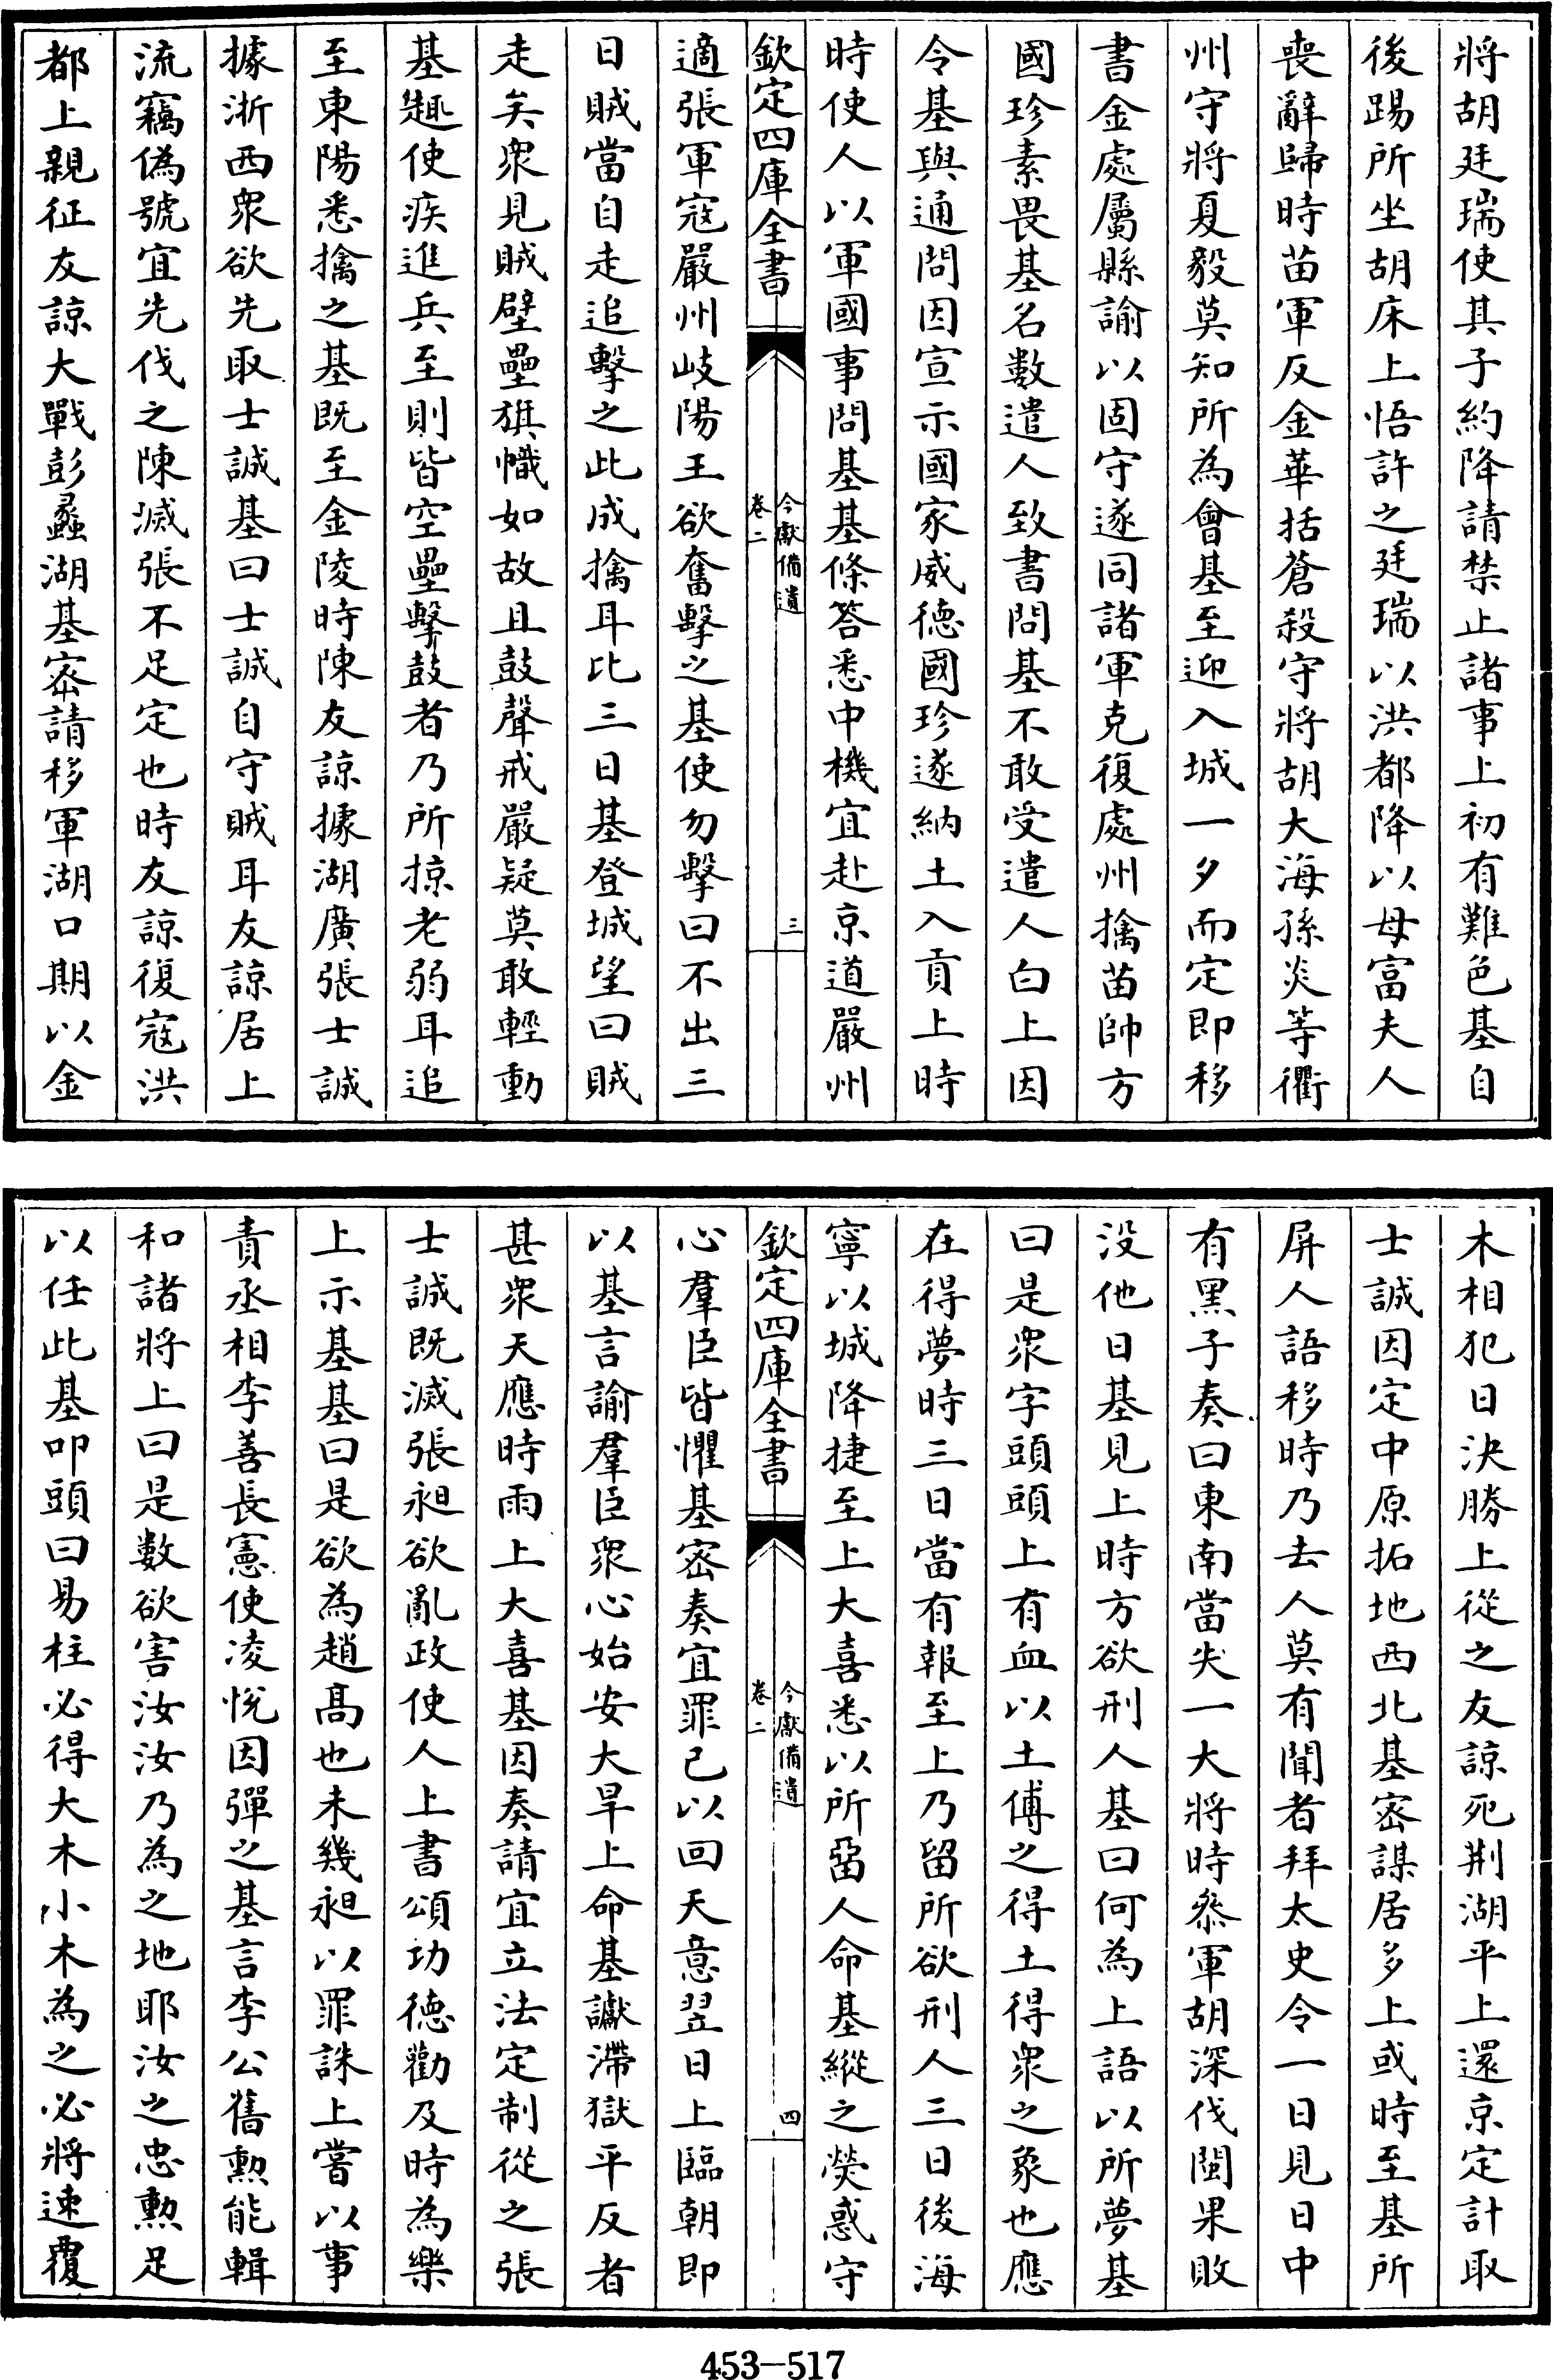 將胡廷瑞使其子約降請禁止諸事上初有難色基自
後踢所坐胡床上悟許之廷瑞以洪都降以母富夫人
喪辭歸時苗軍反金華括蒼殺守將胡大海孫炎等衢
州守將夏毅莫知所為會基至迎入城一夕而定即移
書金處屬縣諭以固守遂同諸軍克復處州擒苗帥方
國珍素畏基名數遣人致書問基不敢受遣人白上因
令基與通問因宣示國家威德國珍遂納土入貢上時
時使人以軍國事問基基條答悉中機宜赴京道嚴州
欽定四庫全書
今獻備遺
卷二
三
適張軍寇嚴州岐陽王欲奮擊之基使勿擊曰不出三
日賊當自走追擊之此成擒耳比三日基登城望曰賊
走矣衆見賊壁壘旗幟如故且鼓聲戒嚴疑莫敢輕動
基趣使疾進兵至則皆空壘擊鼓者乃所掠老弱耳追
至東陽悉擒之基既至金陵時陳友諒據湖廣張士誠
據浙西衆欲先取士誠基曰士誠自守賊耳友諒居上
流竊偽號宜先伐之陳滅張不足定也時友諒復寇洪
都上親征友諒大戰彭蠡湖基密請移軍湖口期以金
木相犯日決勝上從之友諒死荆湖平上還京定計取
士誠因定中原拓地西北基密謀居多上或時至基所
屏人語移時乃去人莫有聞者拜太史令一日見日中
有黑子奏曰東南當失一大將時叅軍胡深伐閩果敗
没他日基見上時方欲刑人基曰何為上語以所夢基
曰是衆字頭頭上有血以土傅之得土得衆之象也應
在得夢時三日當有報至上乃留所欲刑人三日後海
寧以城降捷至上大喜悉以所畱人命基縱之熒惑守
欽定四庫全書
今獻備遺
卷二
四
心羣臣皆懼基密奏宜罪已以回天意翌日上臨朝即
以基言諭羣臣衆心始安大旱上命基讞滯獄平反者
甚衆天應時雨上大喜基因奏請宜立法定制從之張
士誠既滅張昶欲亂政使人上書頌功德勸及時為樂
上示基基曰是欲為趙高也未幾昶以罪誅上嘗以事
責丞相李善長憲使凌恱因彈之基言李公舊勲能輯
和諸將上曰是數欲害汝汝乃為之地耶汝之忠勲足
以任此基叩頭曰易柱必得大木小木為之必將速覆
453-517